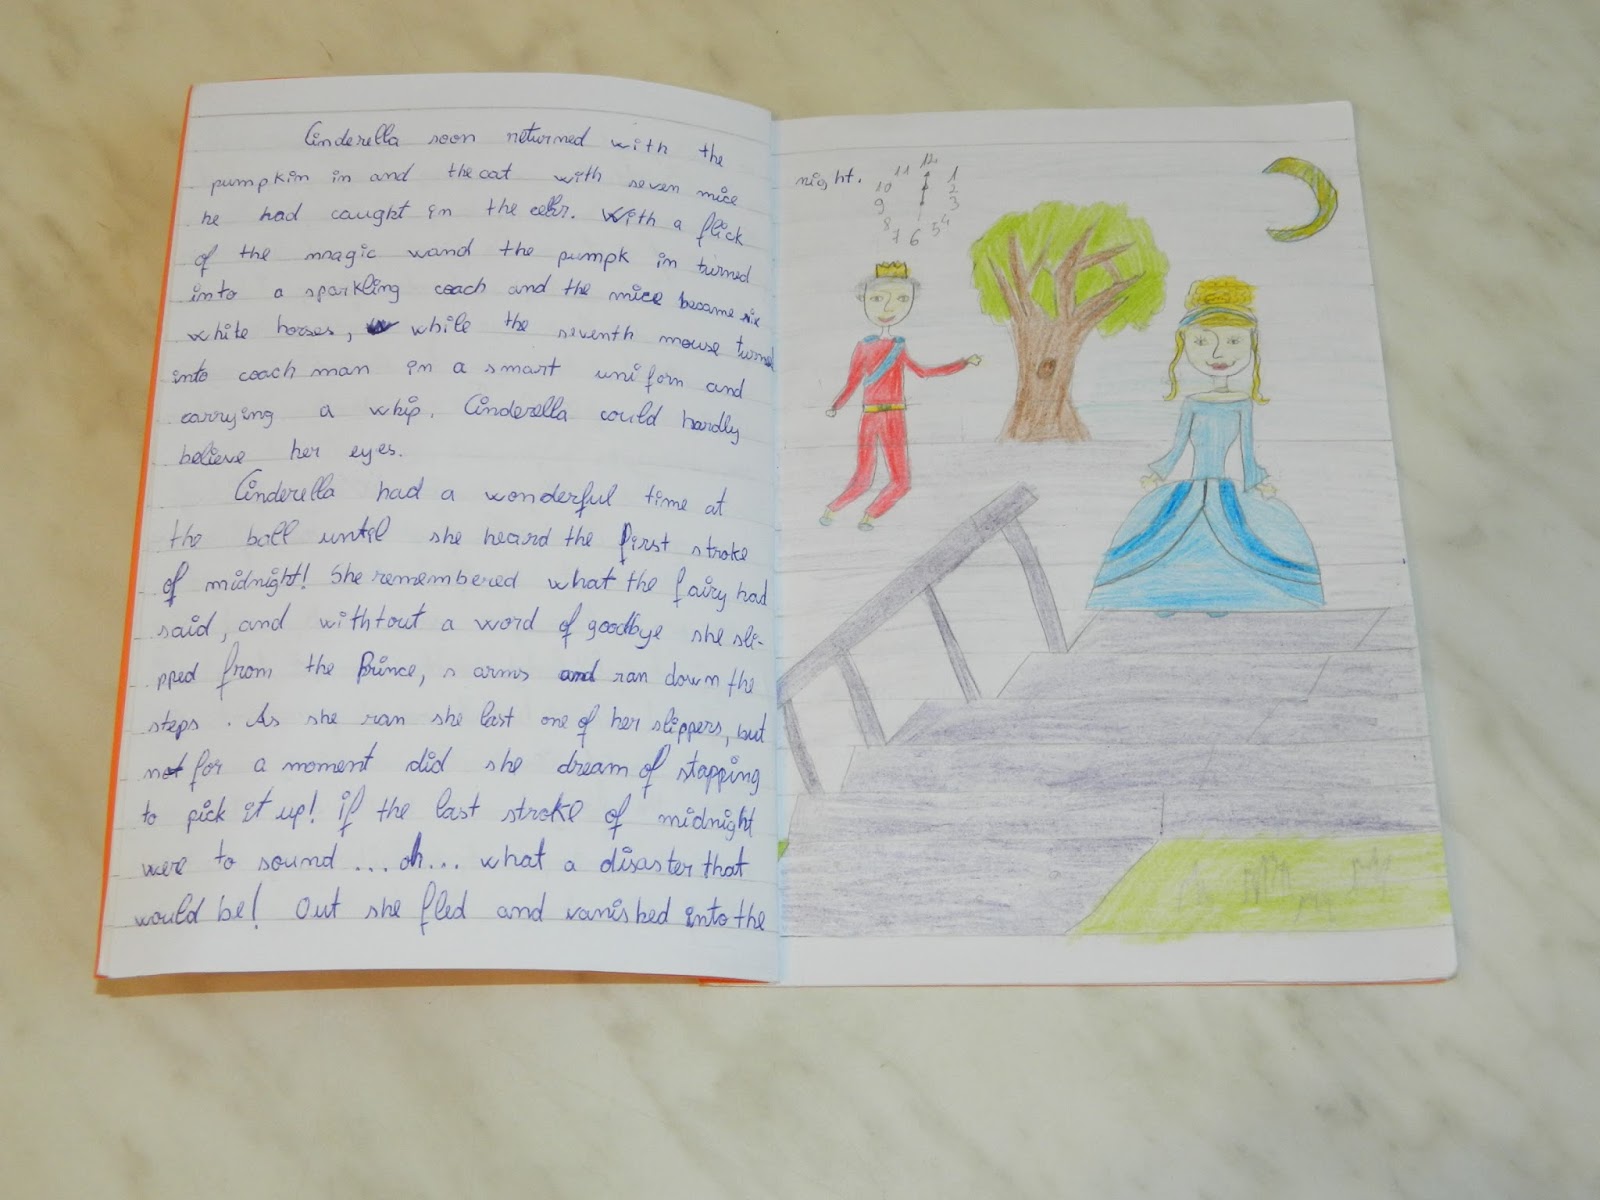 Cinderella soon returned with the
pumpkin in and the cat with seven mice
he had caught in the cellar. With a flick
of the magic wand the pumpk in turned
into a sparkling coach and the mice became six
white horses, while the seventh mouse turned
into coach man in a smart uniform and
carrying a whip. Cinderella could hardly
believe her eyes.
Cinderella had a wonderful time at
the ball until she heard the first stroke
of midnight! She remembered what the fairy had
said, and without a word of goodbye she sli-
pped from the Prince, s arms and ran down the
steps. As she ran she last one of her slippers, but
not for a moment did she dream of stapping
to pick it up! if the last stroke of midnight
were to sound ... oh... what a disaster that
would be! Out she fled and vanished into the
night.
12
11 1
10 2
9 3
8 4
7 6 5